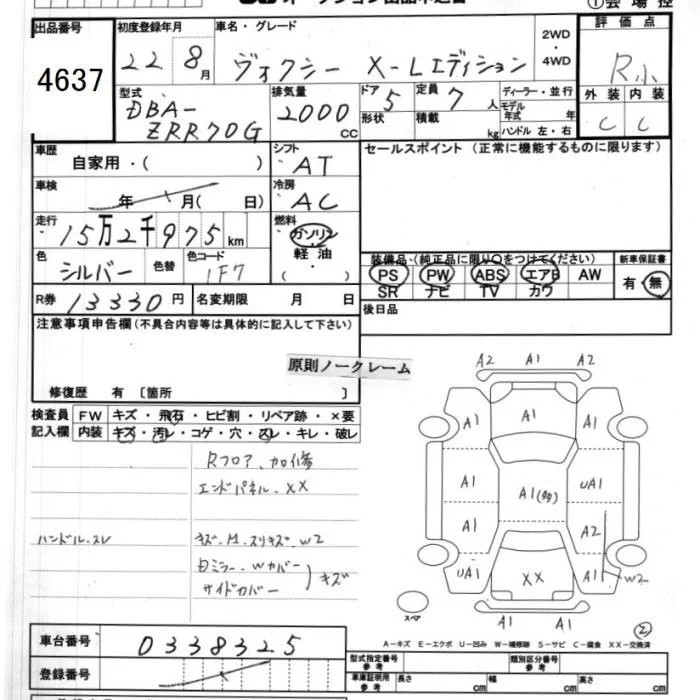 ①会場控
出品番号
4637
初度登録年月
22 8月
車名・グレード
ヴォクシー X-Lエディション
2WD
・
4WD
評価点
R小
外装 内装
C C
型式
DBA-
ZRR70G
排気量
2000
cc
ドア
5
形状
定員
7人
積載
kg
ディーラー・並行
モデル
年式 年
ハンドル 左・右
車歴
自家用・( )
シフト
AT
車検
年 月( 日)
冷房
AC
走行
15万2千975km
燃料
ガソリン
軽油
・( )
色
シルバー
色替
色コード
1F7
R券 13330円
名変期限 月 日
セールスポイント (正常に機能するものに限ります)
装備品・(純正品に限り○をつけてください)
PS PW ABS エアB AW
SR ナビ TV カワ
新車保証書
有・無
後日品
注意事項申告欄(不具合内容等は具体的に記入して下さい)
原則ノークレーム
修復歴 有 〔箇所 〕
検査員
記入欄
FW キズ・飛石・ヒビ割・リペア跡・×要
内装 キズ・汚レ・コゲ・穴・スレ・キレ・破レ
Rフロア、加修
エンドパネル、XX
ハンドル、スレ
キズ、凹、スリキズ、W2
Dミラー、Wカバー
サイドカバー
キズ
A2 A1 A2
A1 A1 A1
A1 A1(多) UA1
A1 A2
UA1 XX A1 W2
A1 A1
スペア
②
A-キズ E-エクボ U-凹み W-補修跡 S-サビ C-腐食 XX-交換済
車台番号
0338325
登録番号
型式指定番号
参考
類別区分番号
参考
車庫証明用
参考
長さ cm
幅 cm
高さ cm